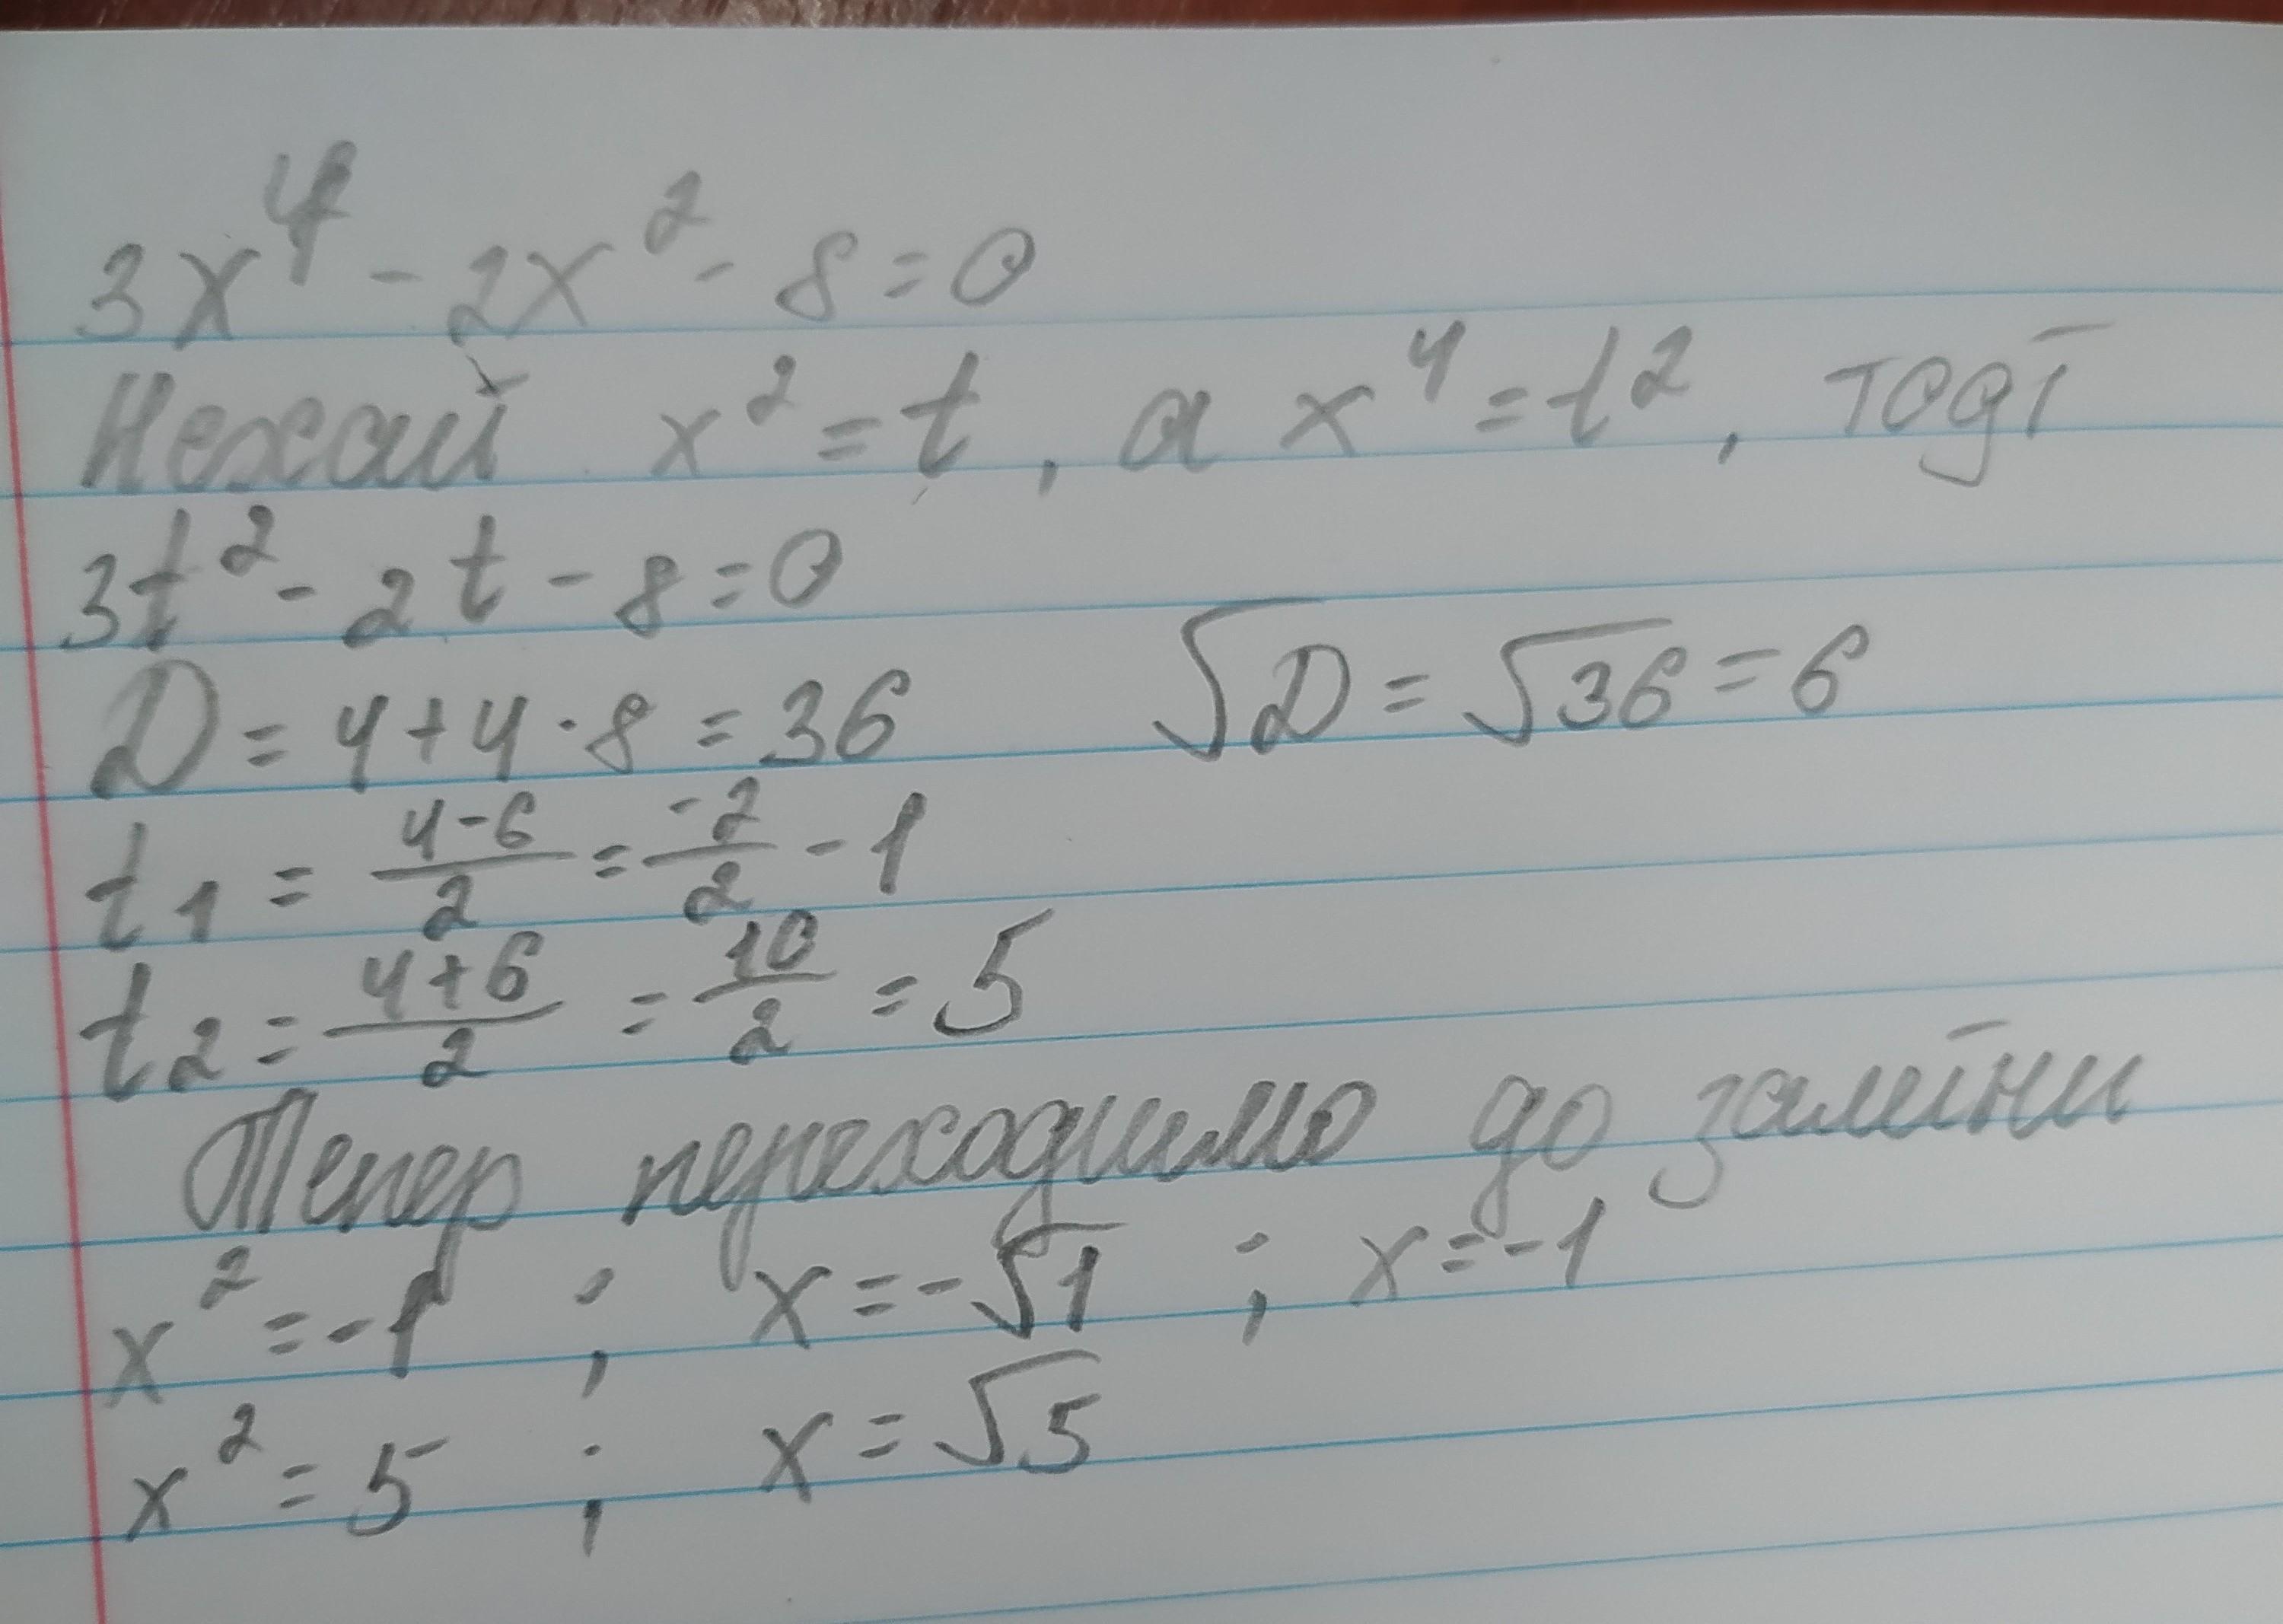 3x⁴ - 2x² - 8 = 0
Нехай x² = t, а x⁴ = t², тоді
3t² - 2t - 8 = 0
D = 4 + 4 · 8 = 36 √D = √36 = 6
t₁ = (4-6)/2 = -2/2 - 1
t₂ = (4+6)/2 = 10/2 = 5
Тепер переходимо до заміни
x² = -1 ; x = -√1 ; x = -1
x² = 5 ; x = √5